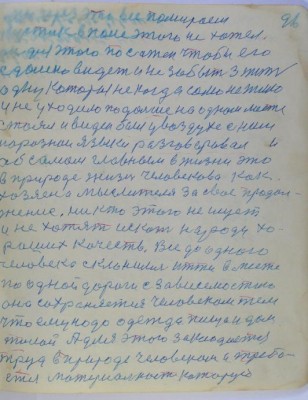 это все помираем
в поле этого не хотел.
этого посажен чтобы его
видет и не забыт З типу
одну которая некогда само не тихо
и не уходило подалше на одном месте
стоял и видел был у воздухе с ним
на разном языки разговаровал и
об самом главным в жизни это
в природе жизни человекова как.
хозяена мыслителя за свое продол-
жение. никто этого не ищет
и не хотят искат народу хо-
роших качеств, Все до одного
человека склонилис итти в месте
по одной дороги с зависемостию
она сохраняется человеком тем
что ему надо одежда пища и дом
жилой А для этого заводится
труд в природе человеком и требо-
ется материалност которую